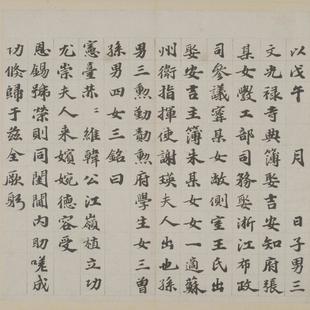 以戊午 月 日子男三
文光禄寺典簿娶吉安知府張
某女㪅工部司務娶浙江布政
司參議甯某女敵側室王氏出
娶安吉主簿朱某女女一適蘇
州衛指揮使謝瑛夫人出也孫
男三勲動勷府學生女三曽
孫男四女三銘曰
憲臺恭 維韓公江嶺植立功
尤崇夫人来嬪婉德容受
恩錫錦榮則同閨閫內助嗟成
功偹歸于兹全厥躬